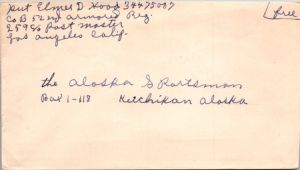 Pvt Elmer D. Hood 34475087
Co B 52nd armored Reg.
℅ Post Master
Los Angeles Calif.
free
the Alaska Sportsman
Box 1-118 Ketchikan Alaska